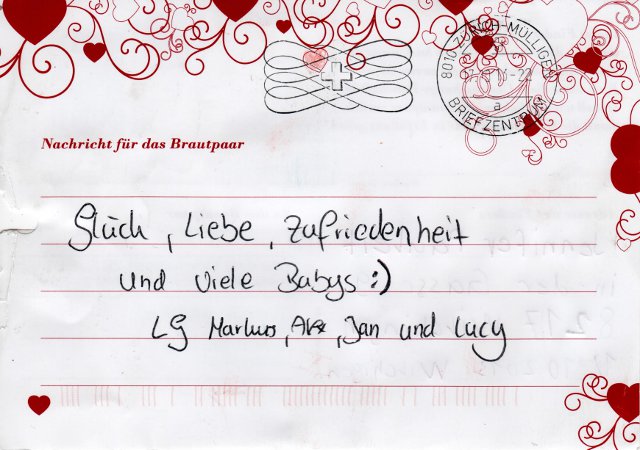 8010 ZÜRICH-MÜLLIGEN
a
BRIEFZENTRUM
Nachricht für das Brautpaar
Glück, Liebe, Zufriedenheit
und viele Babys :)
LG Markus, , Jan und Lucy